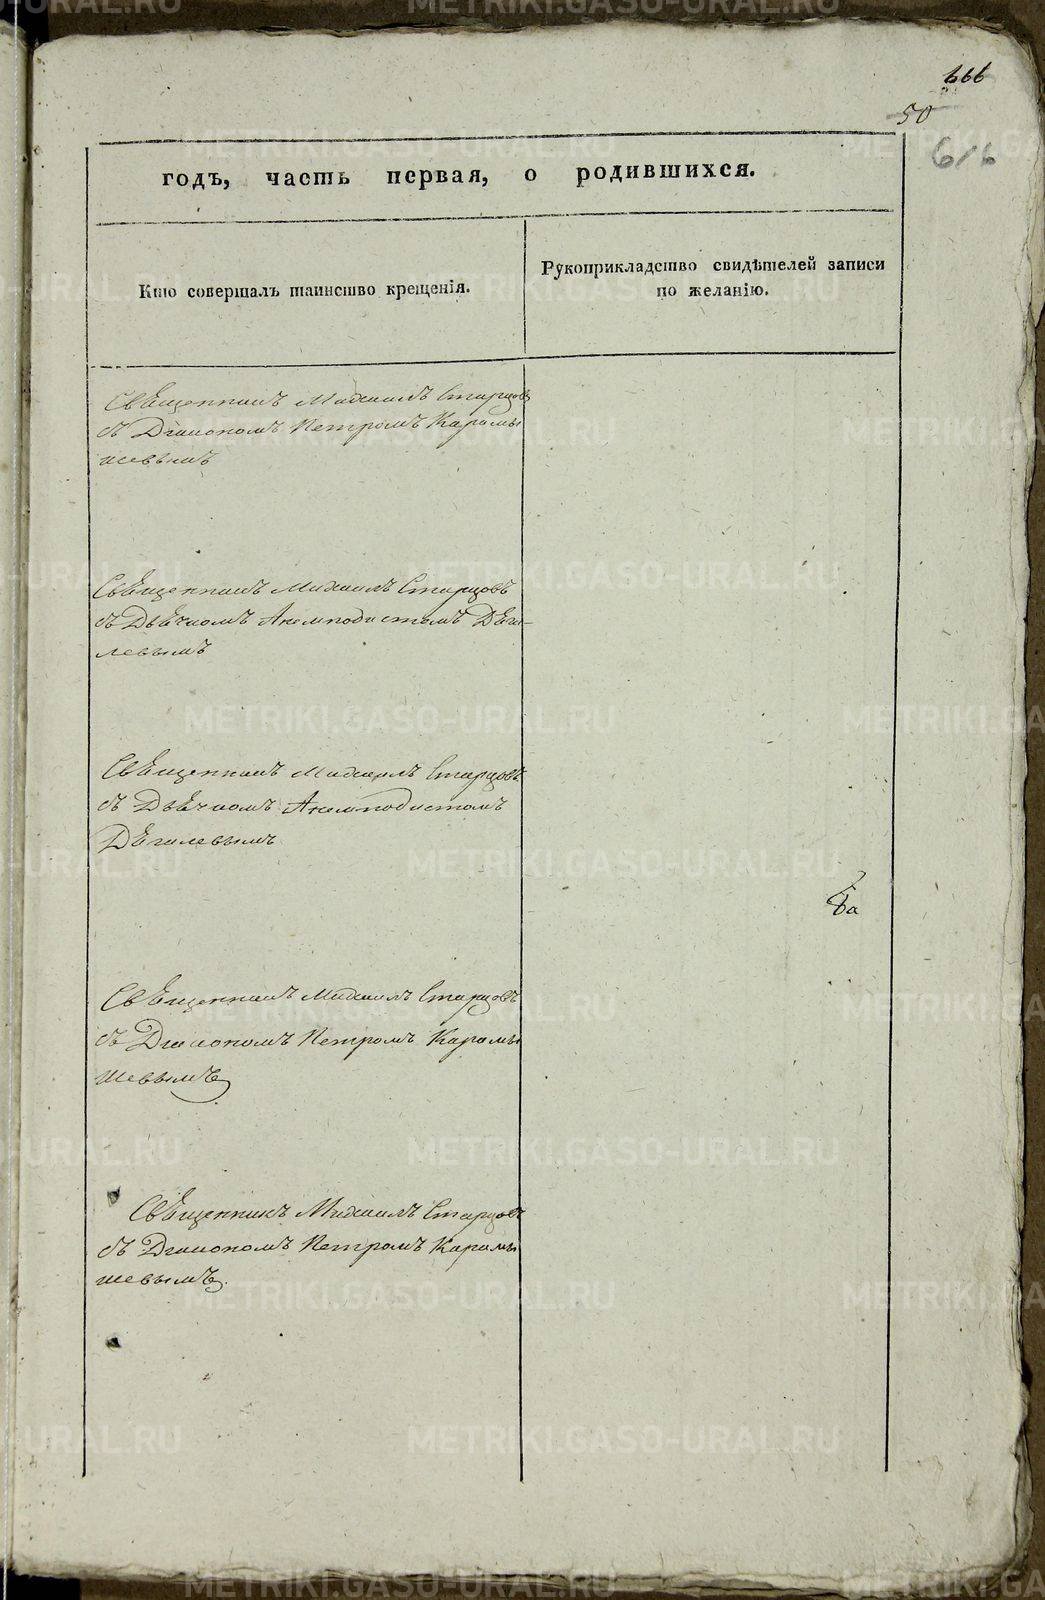 666
50
616
годъ, часть первая, о родившихся.
Кто совершалъ таинство крещенія.
Рукоприкладство свидѣтелей записи
по желанію.
Священникъ Михаилъ Старцовъ
съ Діакономъ Петромъ Карамы
шевымъ
Священникъ Михаилъ Старцовъ
съ Дьячкомъ Акемподистомъ Дѣга-
левымъ
Священникъ Михаилъ Старцовъ
съ Дьячкомъ Акемподистомъ
Дѣгалевымъ
Священникъ Михаилъ Старцовъ
съ Діакономъ Петромъ Карамы
шевымъ
Священникъ Михаилъ Старцовъ
съ Діакономъ Петромъ Карамы
шевымъ.
METRIKI.GASO-URAL.RU